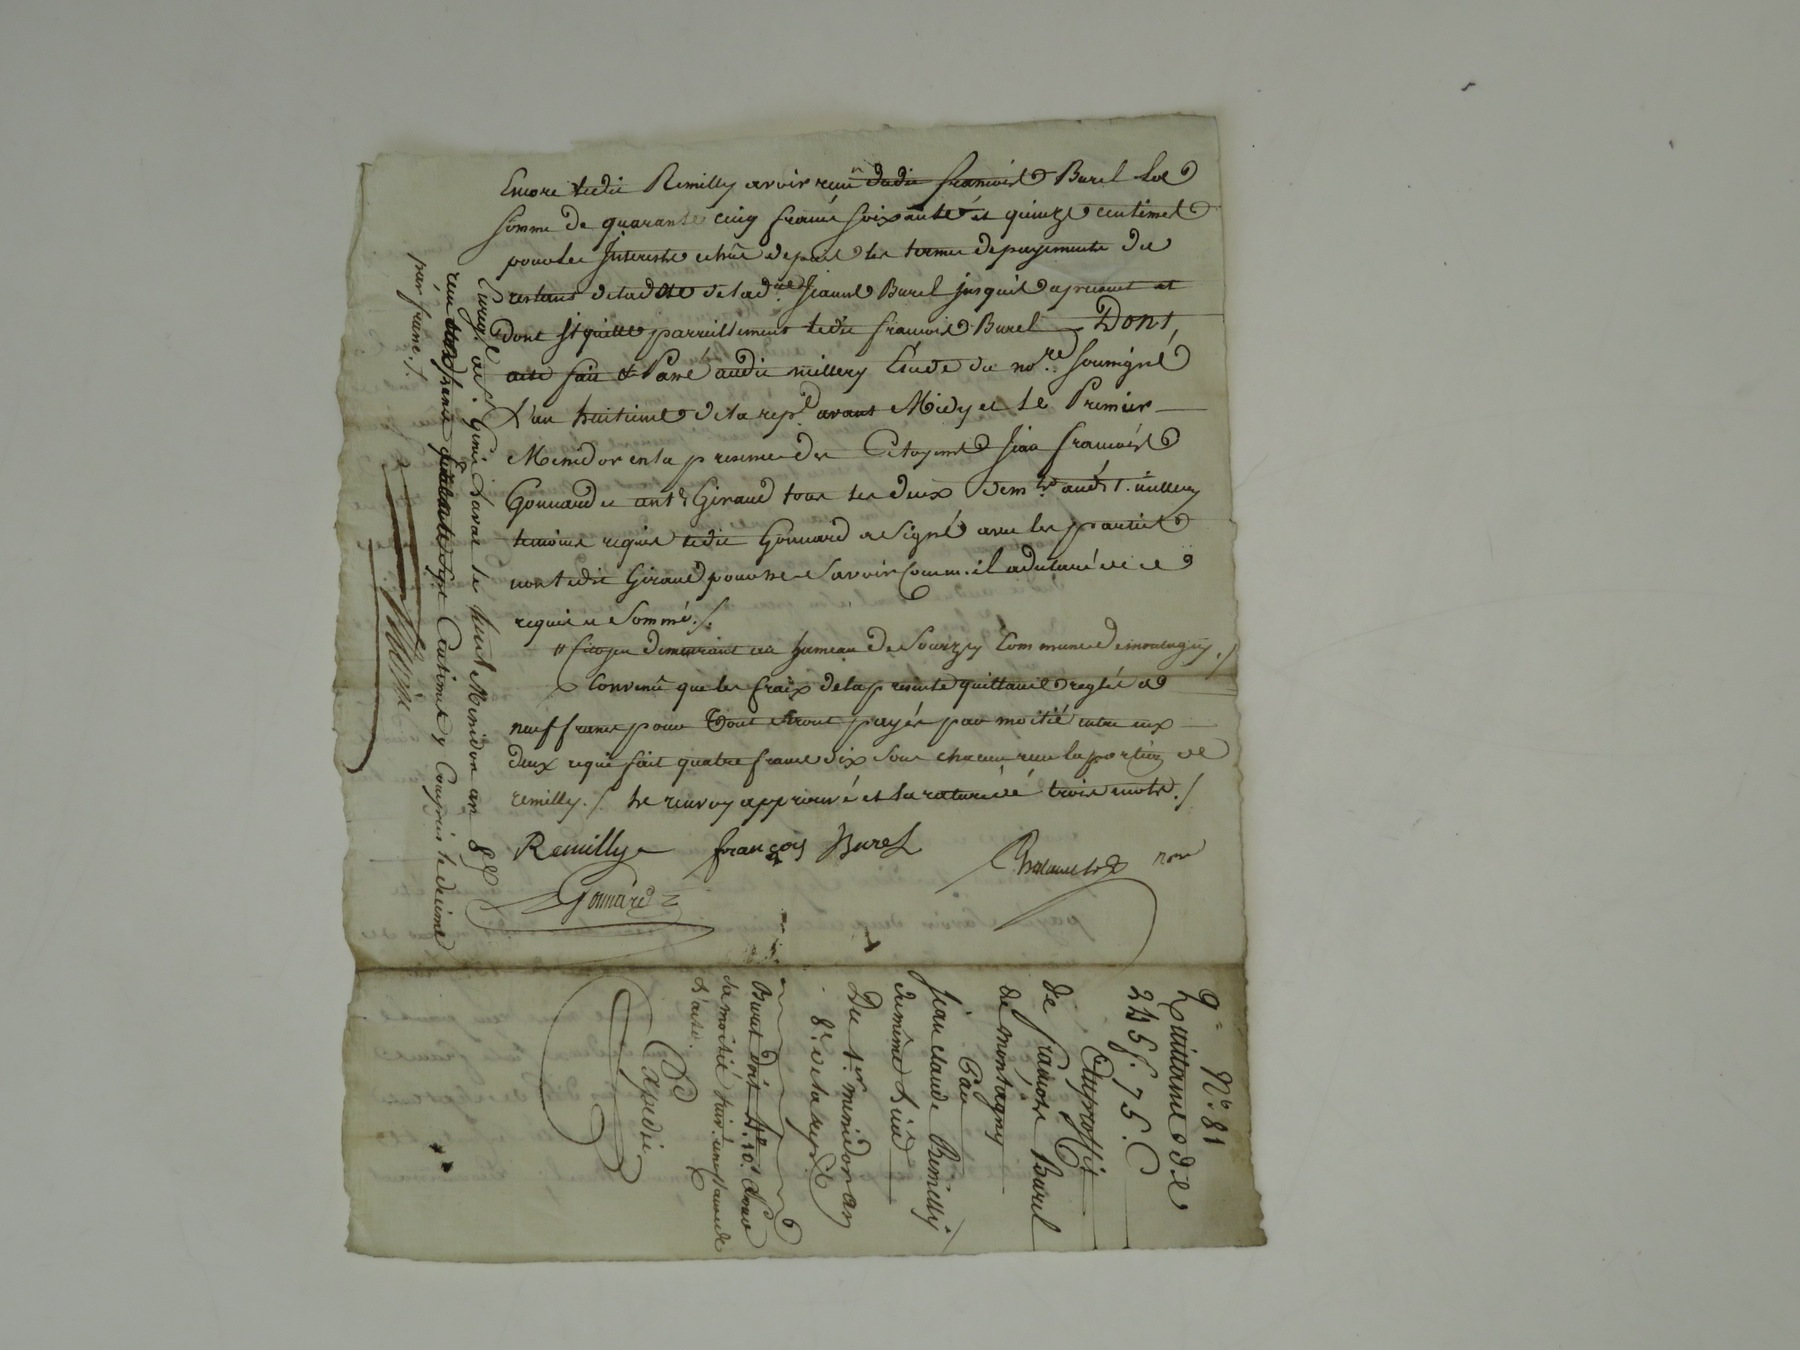 Encore ledit Remilly avoir reçu " dudit françois Burel La
somme de quarante cinq francs soixante et quinze centimes
pour les Interests echus depuis les termes de payements du
restans de la dote de la dite Jeanne Burel jusqu'a present et
dont il quitte pareillement ledit francois Burel Dont
acte fait & Passé audit millery Etude du nore. soussigné
L'an huitieme de la repe. avant Midy et le Premier
Messidor en la presence des Citoyens Jean francois
Gonnard et ant. Giraud tous les deux audit millery
temoins requis ledit Gonnard a signé avec les parties
non ledit Giraud pour ne Savoir comm. il a declaré de ce
requis et Sommé ./.
" Citoyen demeurant au hameau de Sourzy Commune de montagny ./
Convenu que les fraix de la presente quittance reglés a
neuf francs pour tout seront payés par moitié entre eux
deux ce qui fait quatre francs dix sous chacun
remilly ./ le renvoy approuvé et la rature de trois mots ./
Remilly françois Burel
Gonnard
Enreg. à St. Genis Laval le huit Messidor an 8
reçu francs Centimes y Compris le decime
par franc ./.
No. 81
Quittance de
245 f. 75. C
Au proffit
de francois Burel
de montagny
Par
Jean claude Remilly
du même Lieu
Du 1er messidor an
8e. de la repe.
Burel doit 4 10 Sous
sa moitié
L'acte.
Expedié